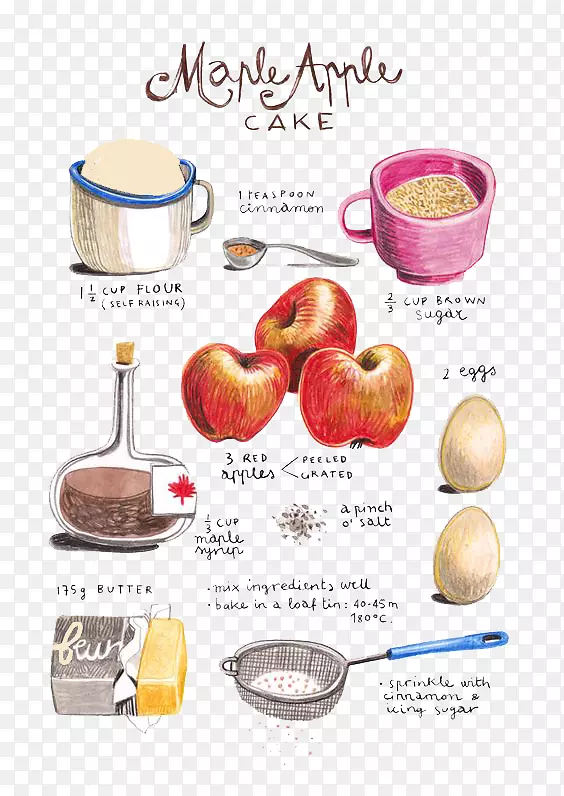 Maple Apple
CAKE
1 TEASPOON
cinnamon
1 1/2 CUP FLOUR
(SELF RAISING)
2/3 CUP BROWN
sugar
2 eggs
3 RED
apples
PEELED
GRATED
1/3 CUP
maple
syrup
a pinch
o' salt
175g BUTTER
· mix ingredients well
· bake in a loaf tin: 40-45m
180°C.
beurr
· sprinkle with
cinnamon &
icing sugar